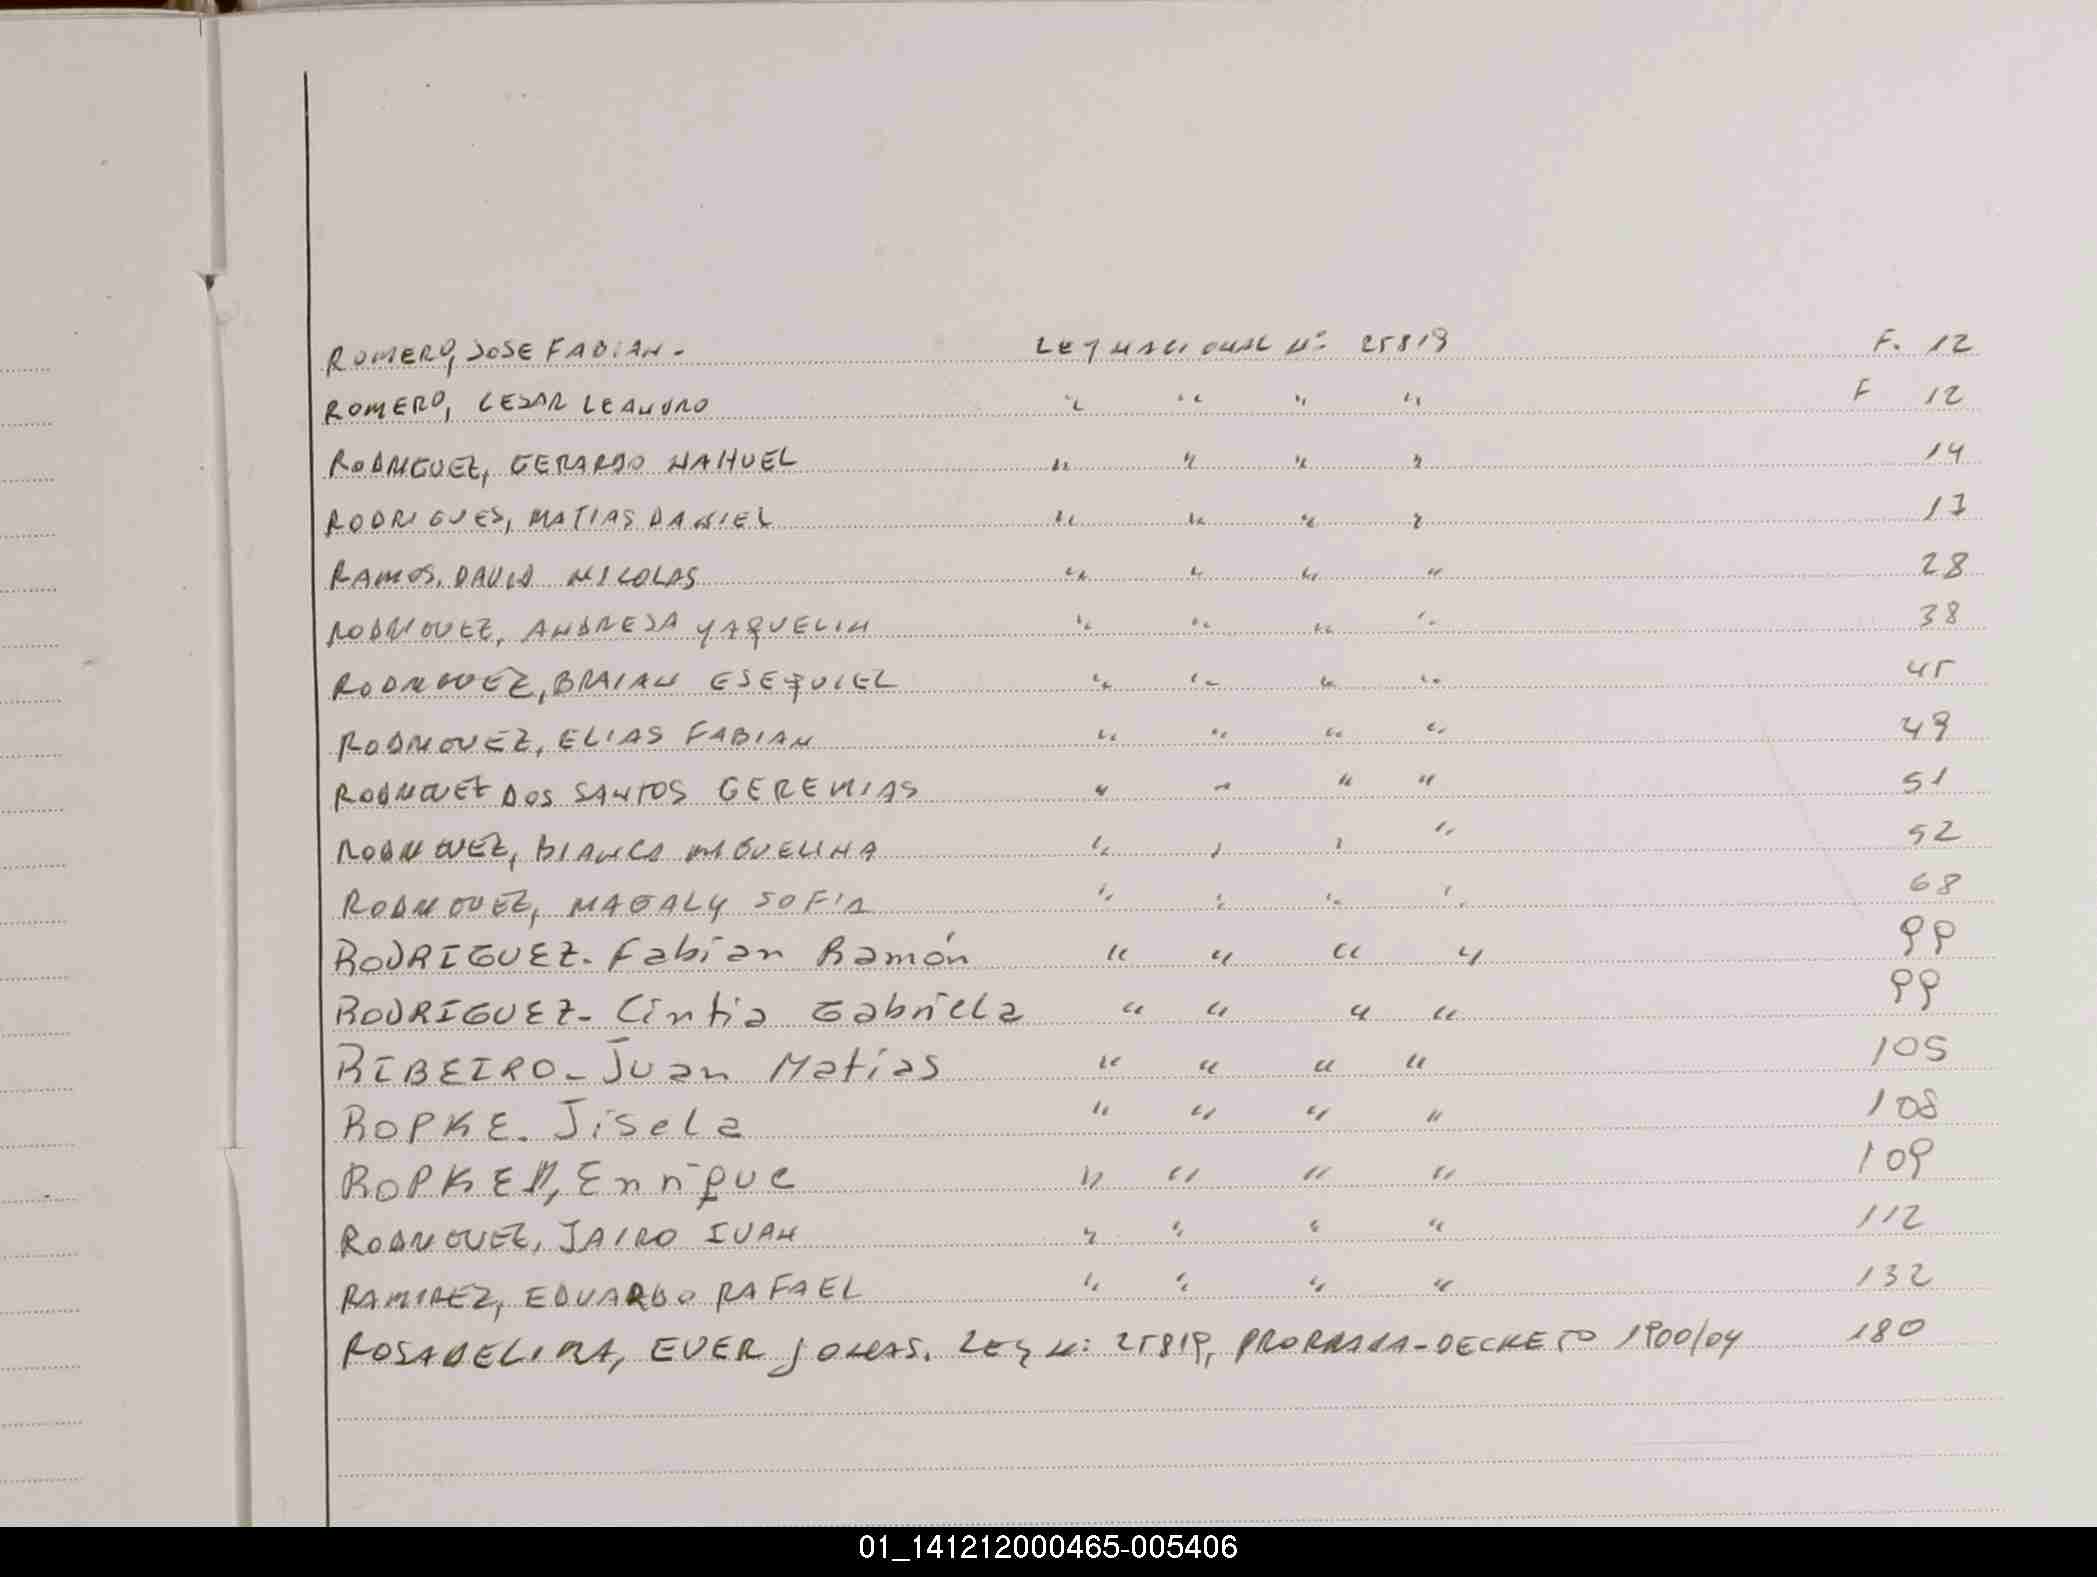 ROMERO, JOSE FABIAN. LEY NACIONAL Nº 25819 F. 12
ROMERO, CESAR LEANDRO " " " " F 12
RODRIGUEZ, GERARDO NAHUEL " " " " 14
RODRIGUES, MATIAS DANIEL " " " " 17
RAMOS. DAVID NICOLAS " " " " 28
RODRIGUEZ, ANDRESA YAQUELIN " " " " 38
RODRIGUEZ, BRAIAN ESEQUIEL " " " " 45
RODRIGUEZ, ELIAS FABIAN " " " " 49
RODRIGUEZ DOS SANTOS GEREMIAS " " " " 51
RODRIGUEZ, BIANCA MIGUELINA " " " " 52
RODRIGUEZ, MAGALY SOFIA " " " " 68
RODRIGUEZ. Fabian Ramón " " " " 99
RODRIGUEZ- Cintia Gabriela " " " " 99
RIBEIRO- Juan Matias " " " " 105
ROPKE. Jisela " " " " 108
ROPKE, Enrique " " " " 109
RODRIGUEZ, JAIRO IVAN " " " " 112
RAMIREZ, EDUARDO RAFAEL " " " " 132
ROSADELIMA, EVER JONAS. LEY Nº 25819, -DECRETO 1900/04 180
01_141212000465-005406